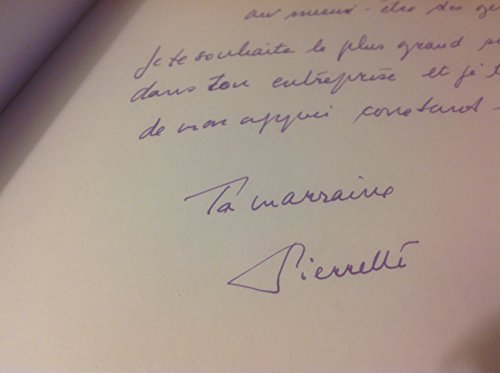 au mieux-être des ge
Je te souhaite le plus grand s
dans ton entreprise et je t
de mon appui constant.
Ta marraine
Pierrette